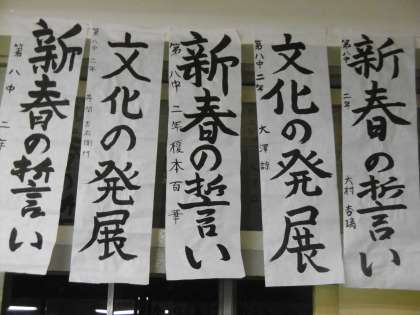 新春の誓い
第八中 二年 大村 杏璃
文化の発展
第八中 二年 大澤 諒
新春の誓い
第八中 二年 榎本 百華
文化の発展
第八中 二年
新春の誓い
第八中 二年